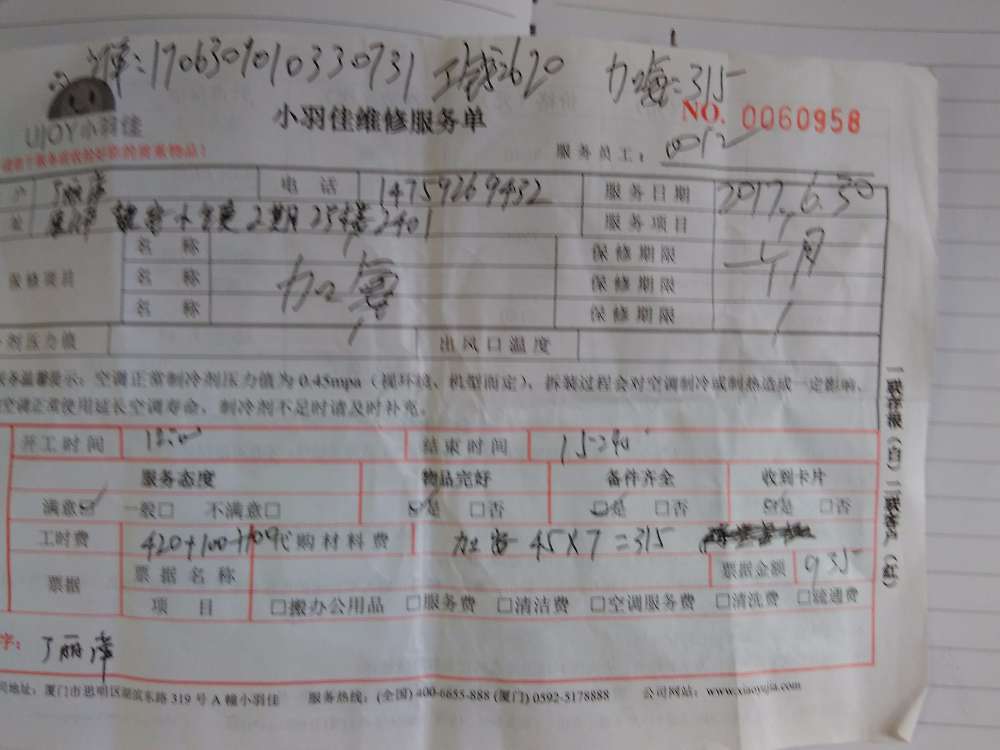 单:1706309010330731 工钱620 加氟=315
UJOY小羽佳
小羽佳维修服务单
NO. 0060958
服务员工: 0012
户 丁丽萍 电话 14759269432 服务日期 2017.6.30
2期 254楼2401 服务项目
保修项目 名称 加氟 保修期限 一个月
名称 保修期限
名称 保修期限
剂压力值 出风口温度
务温馨提示:空调正常制冷剂压力值为0.45mpa(视环境、机型而定)、拆装过程会对空调制冷或制热造成一定影响、
空调正常使用延长空调寿命、制冷剂不足时请及时补充。
开工时间 结束时间 15:40
服务态度 物品完好 备件齐全 收到卡片
满意☑ 一般□ 不满意□ ☑是 □否 ☑是 □否 ☑是 □否
工时费 420+100+100 代购材料费 加氟 45X7=315
票据 票据名称 票据金额 935
项目 □搬办公用品 □服务费 □清洁费 □空调服务费 □清洗费 □疏通费
字: 丁丽萍
司地址:厦门市思明区湖滨东路319号A幢小羽佳 服务热线:(全国)400-6855-888 (厦门)0592-5178888 公司网站:www.xiaoyujia.com
一联存根(白)二联客户(红)